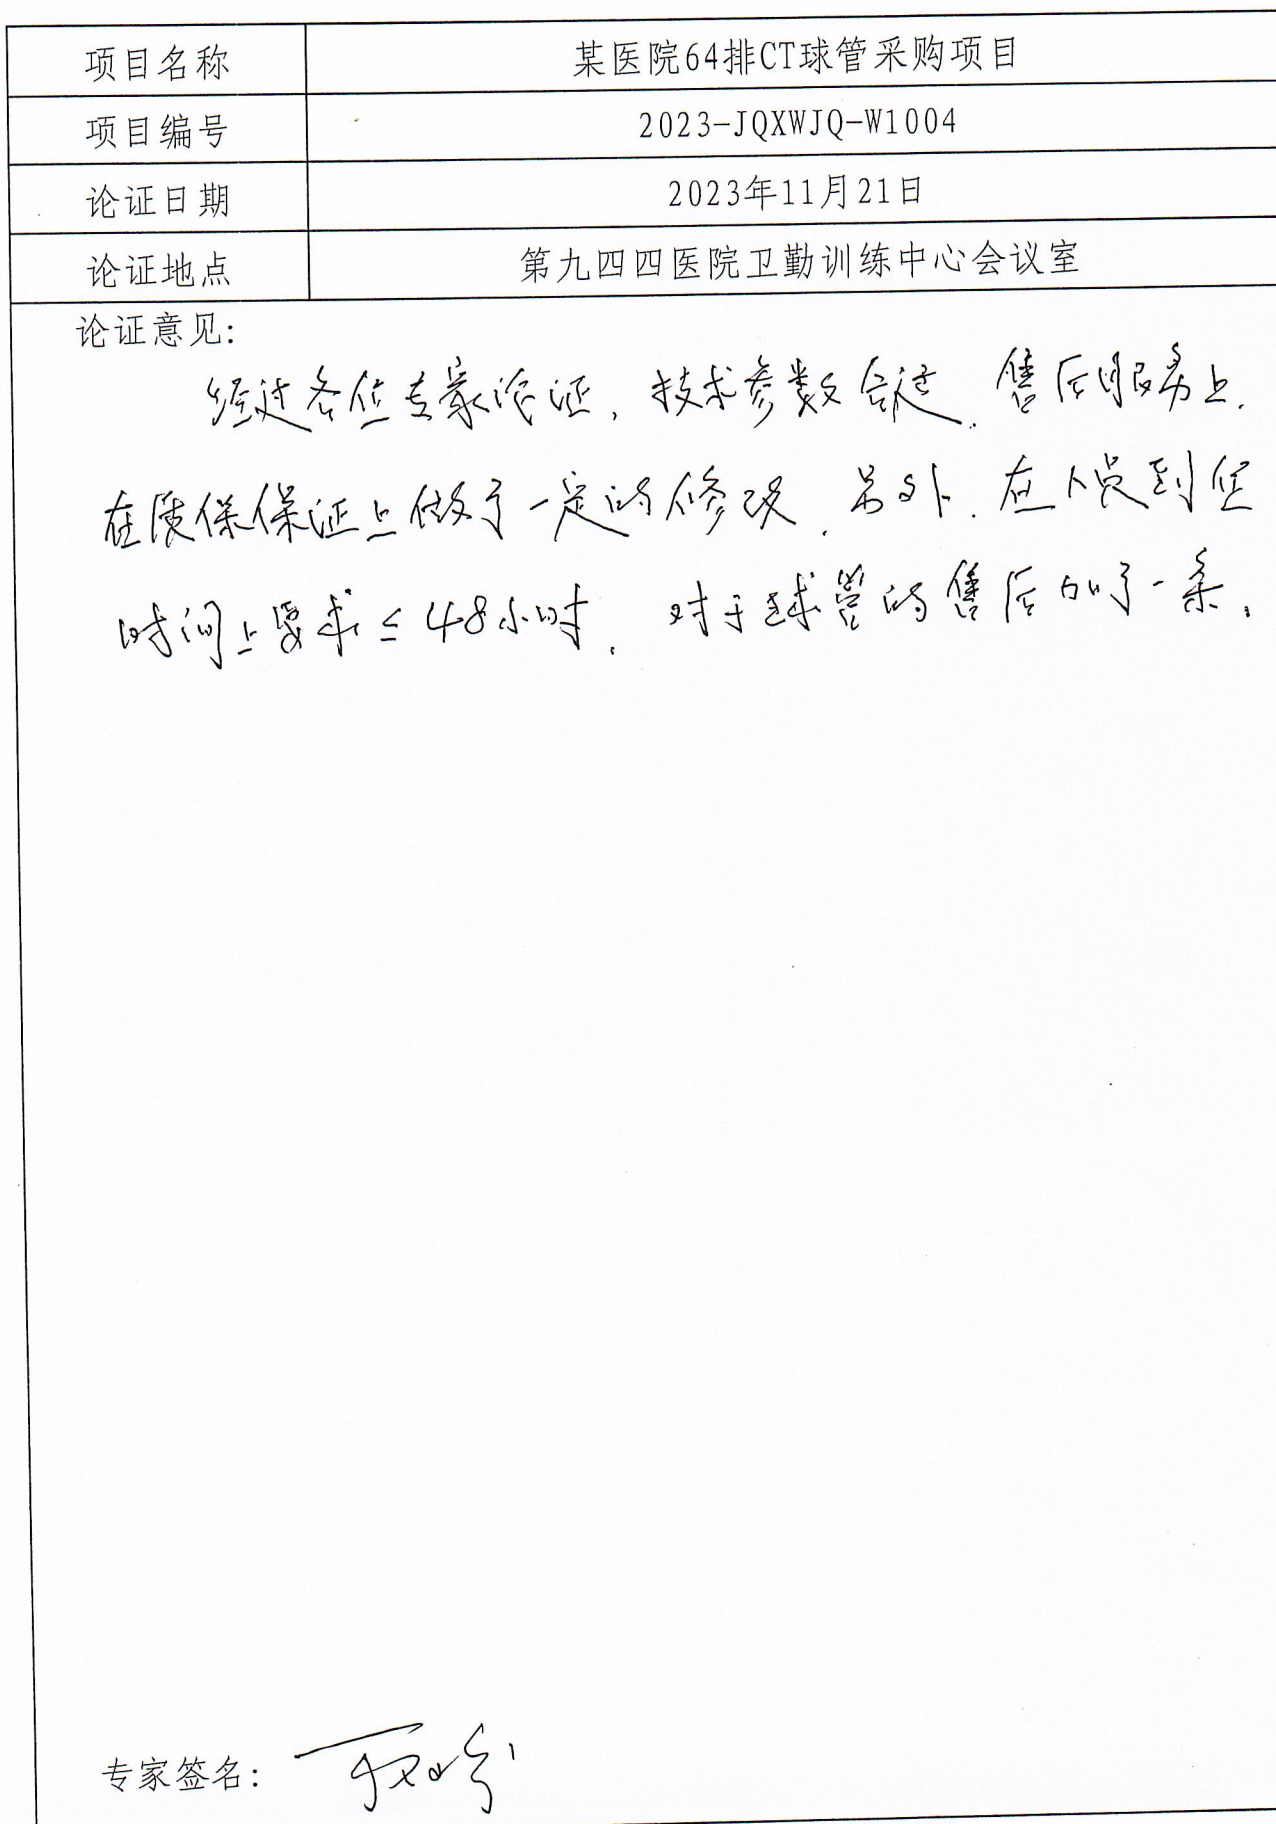 项目名称 某医院64排CT球管采购项目
项目编号 2023-JQXWJQ-W1004
论证日期 2023年11月21日
论证地点 第九四四医院卫勤训练中心会议室
论证意见:
经过各位专家论证，技术参数合适，售后服务上，
在质保保证上做了一定的修改，另外，在人员到位
时间上要求≤48小时，对于球管的售后加了一条。
专家签名: